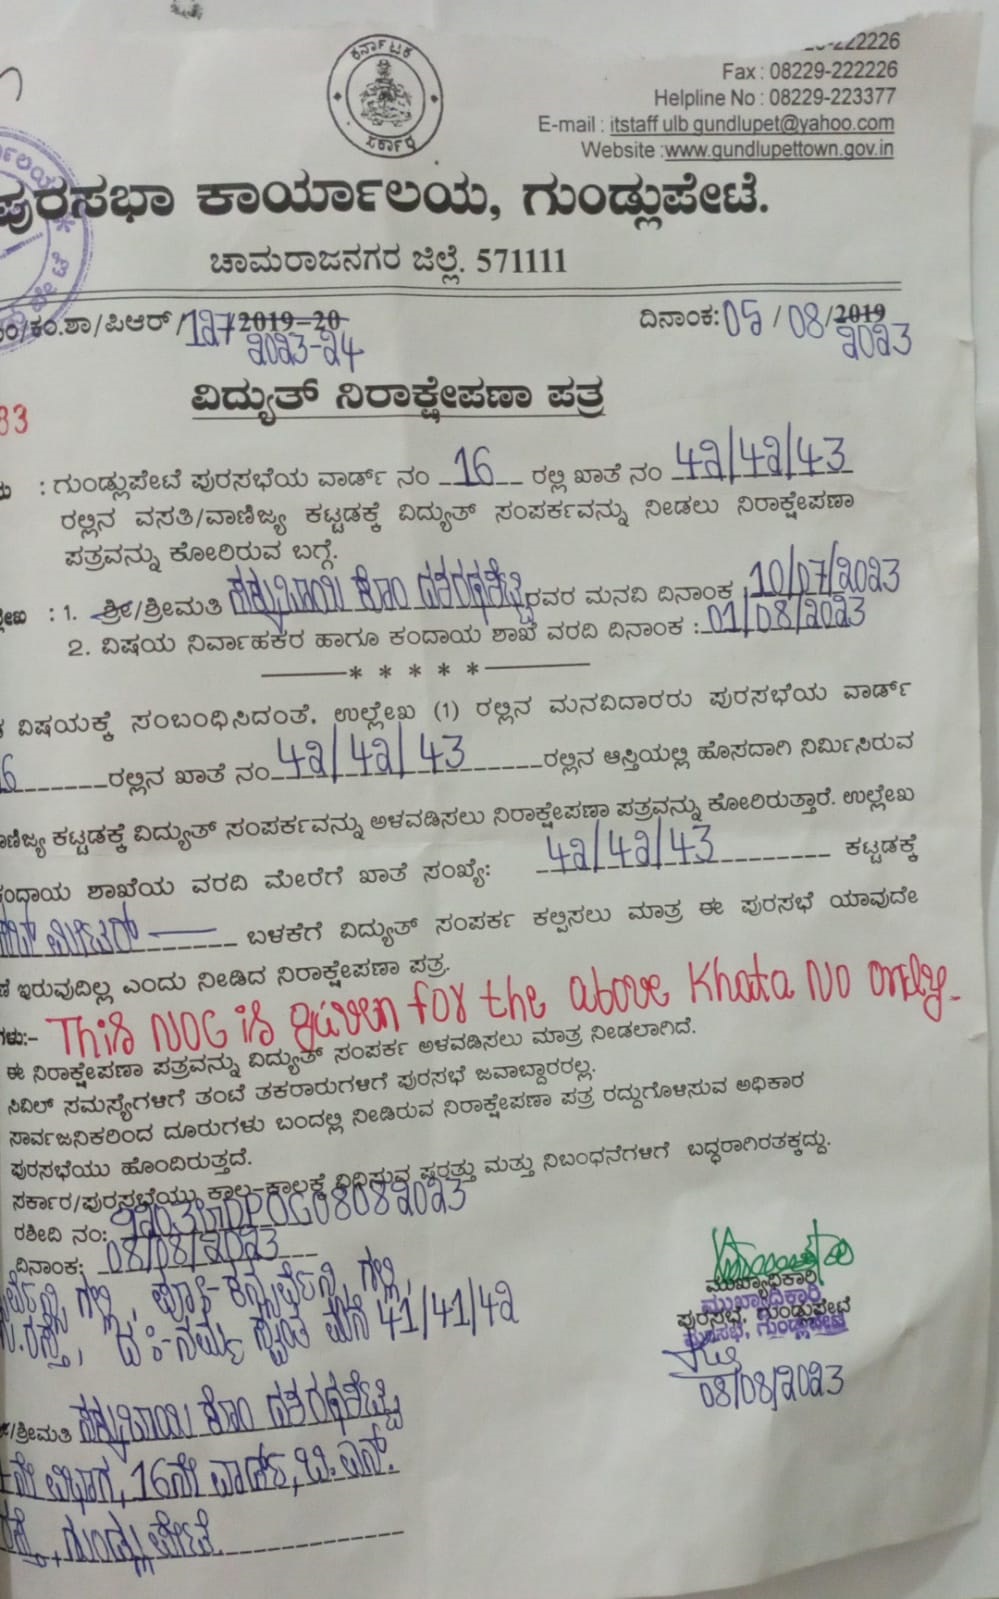 ಕರ್ನಾಟಕ
ಸರ್ಕಾರ
222226
Fax : 08229-222226
Helpline No : 08229-223377
E-mail : itstaff ulb gundlupet@yahoo.com
Website :www.gundlupettown.gov.in
ಪುರಸಭಾ ಕಾರ್ಯಾಲಯ, ಗುಂಡ್ಲುಪೇಟೆ.
ಚಾಮರಾಜನಗರ ಜಿಲ್ಲೆ. 571111
/ಕಂ.ಶಾ/ಪಿಆರ್ /127/2019-20 ದಿನಾಂಕ: 05 / 08 /2019
2023-24 2023
ವಿದ್ಯುತ್ ನಿರಾಕ್ಷೇಪಣಾ ಪತ್ರ
83
: ಗುಂಡ್ಲುಪೇಟೆ ಪುರಸಭೆಯ ವಾರ್ಡ್ ನಂ 16 ರಲ್ಲಿ ಖಾತೆ ನಂ 42/42/43
ರಲ್ಲಿನ ವಸತಿ/ವಾಣಿಜ್ಯ ಕಟ್ಟಡಕ್ಕೆ ವಿದ್ಯುತ್ ಸಂಪರ್ಕವನ್ನು ನೀಡಲು ನಿರಾಕ್ಷೇಪಣಾ
ಪತ್ರವನ್ನು ಕೋರಿರುವ ಬಗ್ಗೆ.
: 1. ಶ್ರೀ/ಶ್ರೀಮತಿ ಕೋಂ ದಶರಥಶೆಟ್ಟಿ ರವರ ಮನವಿ ದಿನಾಂಕ 10/07/2023
2. ವಿಷಯ ನಿರ್ವಾಹಕರ ಹಾಗೂ ಕಂದಾಯ ಶಾಖೆ ವರದಿ ದಿನಾಂಕ : 01/08/2023
* * * * *
ವಿಷಯಕ್ಕೆ ಸಂಬಂಧಿಸಿದಂತೆ, ಉಲ್ಲೇಖ (1) ರಲ್ಲಿನ ಮನವಿದಾರರು ಪುರಸಭೆಯ ವಾರ್ಡ್
ರಲ್ಲಿನ ಖಾತೆ ನಂ 42/42/43 ರಲ್ಲಿನ ಆಸ್ತಿಯಲ್ಲಿ ಹೊಸದಾಗಿ ನಿರ್ಮಿಸಿರುವ
ಕಟ್ಟಡಕ್ಕೆ ವಿದ್ಯುತ್ ಸಂಪರ್ಕವನ್ನು ಅಳವಡಿಸಲು ನಿರಾಕ್ಷೇಪಣಾ ಪತ್ರವನ್ನು ಕೋರಿರುತ್ತಾರೆ. ಉಲ್ಲೇಖ
ಕಂದಾಯ ಶಾಖೆಯ ವರದಿ ಮೇರೆಗೆ ಖಾತೆ ಸಂಖ್ಯೆ: 42/42/43 ಕಟ್ಟಡಕ್ಕೆ
ಬಳಕೆಗೆ ವಿದ್ಯುತ್ ಸಂಪರ್ಕ ಕಲ್ಪಿಸಲು ಮಾತ್ರ ಈ ಪುರಸಭೆ ಯಾವುದೇ
ಇರುವುದಿಲ್ಲ ಎಂದು ನೀಡಿದ ನಿರಾಕ್ಷೇಪಣಾ ಪತ್ರ.
This NOC is given for the above Khata No only.
ಈ ನಿರಾಕ್ಷೇಪಣಾ ಪತ್ರವನ್ನು ವಿದ್ಯುತ್ ಸಂಪರ್ಕ ಅಳವಡಿಸಲು ಮಾತ್ರ ನೀಡಲಾಗಿದೆ.
ಸಿವಿಲ್ ಸಮಸ್ಯೆಗಳಿಗೆ ತಂಟೆ ತಕರಾರುಗಳಿಗೆ ಪುರಸಭೆ ಜವಾಬ್ದಾರರಲ್ಲ.
ಸಾರ್ವಜನಿಕರಿಂದ ದೂರುಗಳು ಬಂದಲ್ಲಿ ನೀಡಿರುವ ನಿರಾಕ್ಷೇಪಣಾ ಪತ್ರ ರದ್ದುಗೊಳಿಸುವ ಅಧಿಕಾರ
ಪುರಸಭೆಯು ಹೊಂದಿರುತ್ತದೆ.
ಸರ್ಕಾರ/ಪುರಸಭೆಯು ಕಾಲ-ಕಾಲಕ್ಕೆ ವಿಧಿಸುವ ಷರತ್ತು ಮತ್ತು ನಿಬಂಧನೆಗಳಿಗೆ ಬದ್ಧರಾಗಿರತಕ್ಕದ್ದು.
ರಶೀದಿ ನಂ:
ದಿನಾಂಕ: 08/08/2023
ಗಲ್ಲಿ, ಗಲ್ಲಿ,
ರಸ್ತೆ, ಸ್ವಂತ ಮನೆ 41/41/42
ಮುಖ್ಯಾಧಿಕಾರಿ
ಮುಖ್ಯಾಧಿಕಾರಿ
ಪುರಸಭೆ, ಗುಂಡ್ಲುಪೇಟೆ
ಪುರಸಭೆ, ಗುಂಡ್ಲುಪೇಟೆ
08/08/2023
/ಶ್ರೀಮತಿ ಕೋಂ ದಶರಥಶೆಟ್ಟಿ
ನೇ ವಿಭಾಗ, 16ನೇ ವಾರ್ಡ್, ಬಿ.ಎನ್.
ರಸ್ತೆ, ಗುಂಡ್ಲುಪೇಟೆ